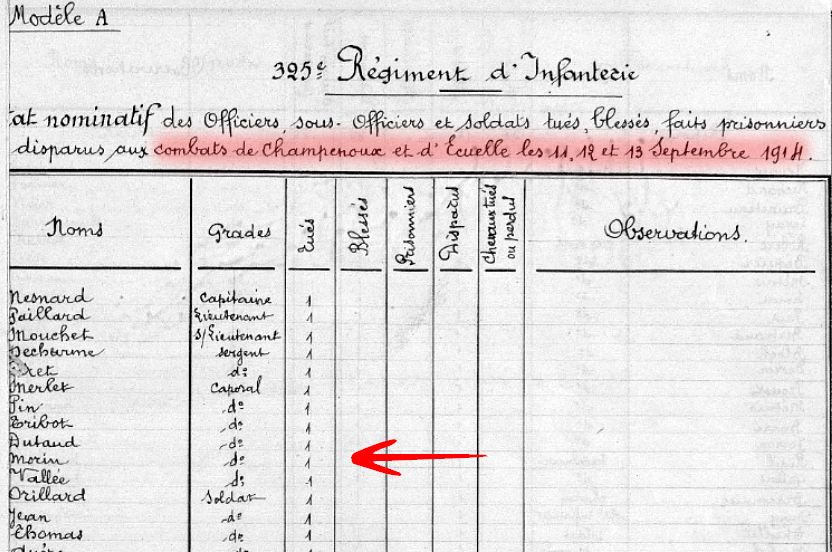 Modèle A
325e Régiment d'Infanterie
Etat nominatif des Officiers, sous-Officiers et soldats tués, blessés, faits prisonniers
disparus aux combats de Champenoux et d'Ecuelle les 11, 12 et 13 Septembre 1914.
Noms Grades Tués Blessés Prisonniers Disparus Chevaux tués ou perdus Observations.
Mesnard Capitaine 1
Paillard Lieutenant 1
Mouchet s/Lieutenant 1
Decharme sergent 1
do 1
Merlet Caporal 1
Pin do 1
Tribot do 1
Dutaud do 1
Morin do 1
Vallée do 1
Orillard Soldat 1
Jean do 1
Thomas do 1